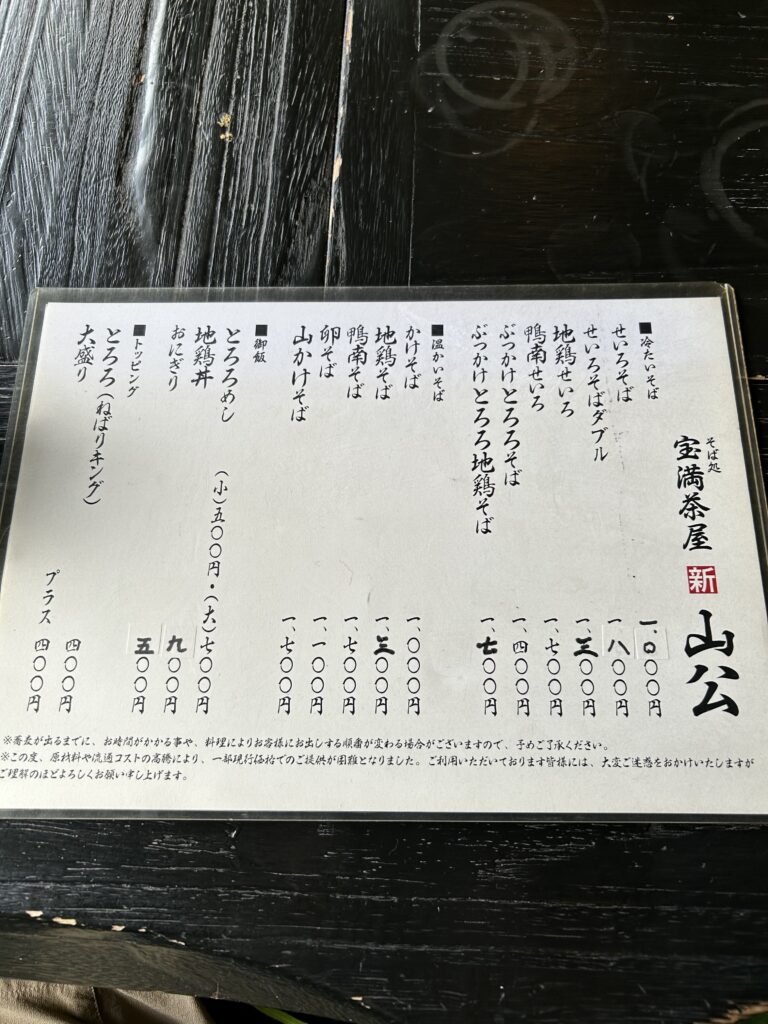 そば処
宝満茶屋 新 山公
■冷たいそば
せいろそば 一、〇〇〇円
せいろそばダブル 一、八〇〇円
地鶏せいろ 一、三〇〇円
鴨南せいろ 一、七〇〇円
ぶっかけとろろそば 一、四〇〇円
ぶっかけとろろ地鶏そば 一、七〇〇円
■温かいそば
かけそば 一、〇〇〇円
地鶏そば 一、三〇〇円
鴨南そば 一、七〇〇円
卵そば 一、一〇〇円
山かけそば 一、七〇〇円
■御飯
とろろめし (小)五〇〇円・(大)七〇〇円
地鶏丼 九〇〇円
おにぎり 五〇〇円
■トッピング
とろろ(ねばりキング) 四〇〇円
大盛り プラス 四〇〇円
※蕎麦が出るまでに、お時間がかかる事や、料理によりお客様にお出しする順番が変わる場合がございますので、予めご了承ください。
※この度、原材料や流通コストの高騰により、一部現行価格でのご提供が困難となりました。ご利用いただいております皆様には、大変ご迷惑をおかけいたしますが
ご理解のほどよろしくお願い申し上げます。